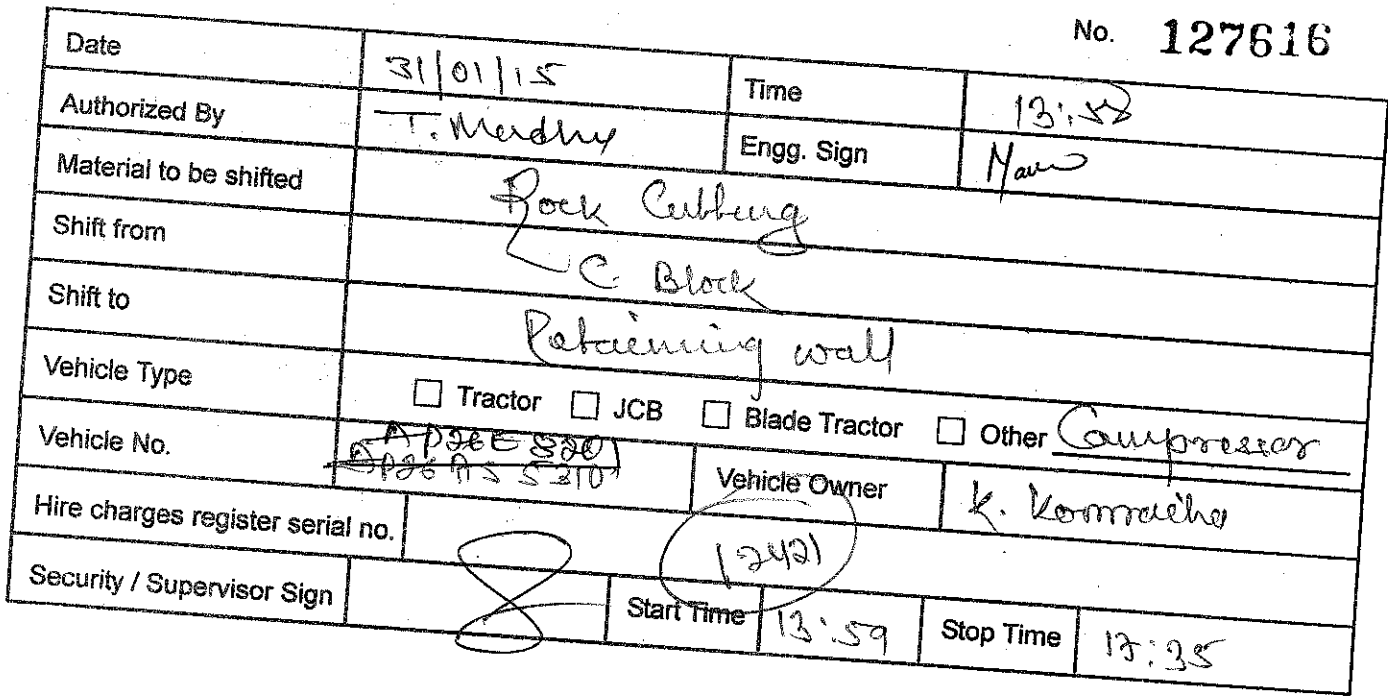 No. 127616
Date 31/01/15 Time 13:58
Authorized By T. Madhu Engg. Sign
Material to be shifted Rock Cutting
Shift from C. Block
Shift to Retaining wall
Vehicle Type ☐ Tractor ☐ JCB ☐ Blade Tractor ☐ Other Compressor
Vehicle No. AP26E 5201 Vehicle Owner K.
AP26 AS 5310
Hire charges register serial no. 12421
Security / Supervisor Sign Start Time 13:59 Stop Time 17:35